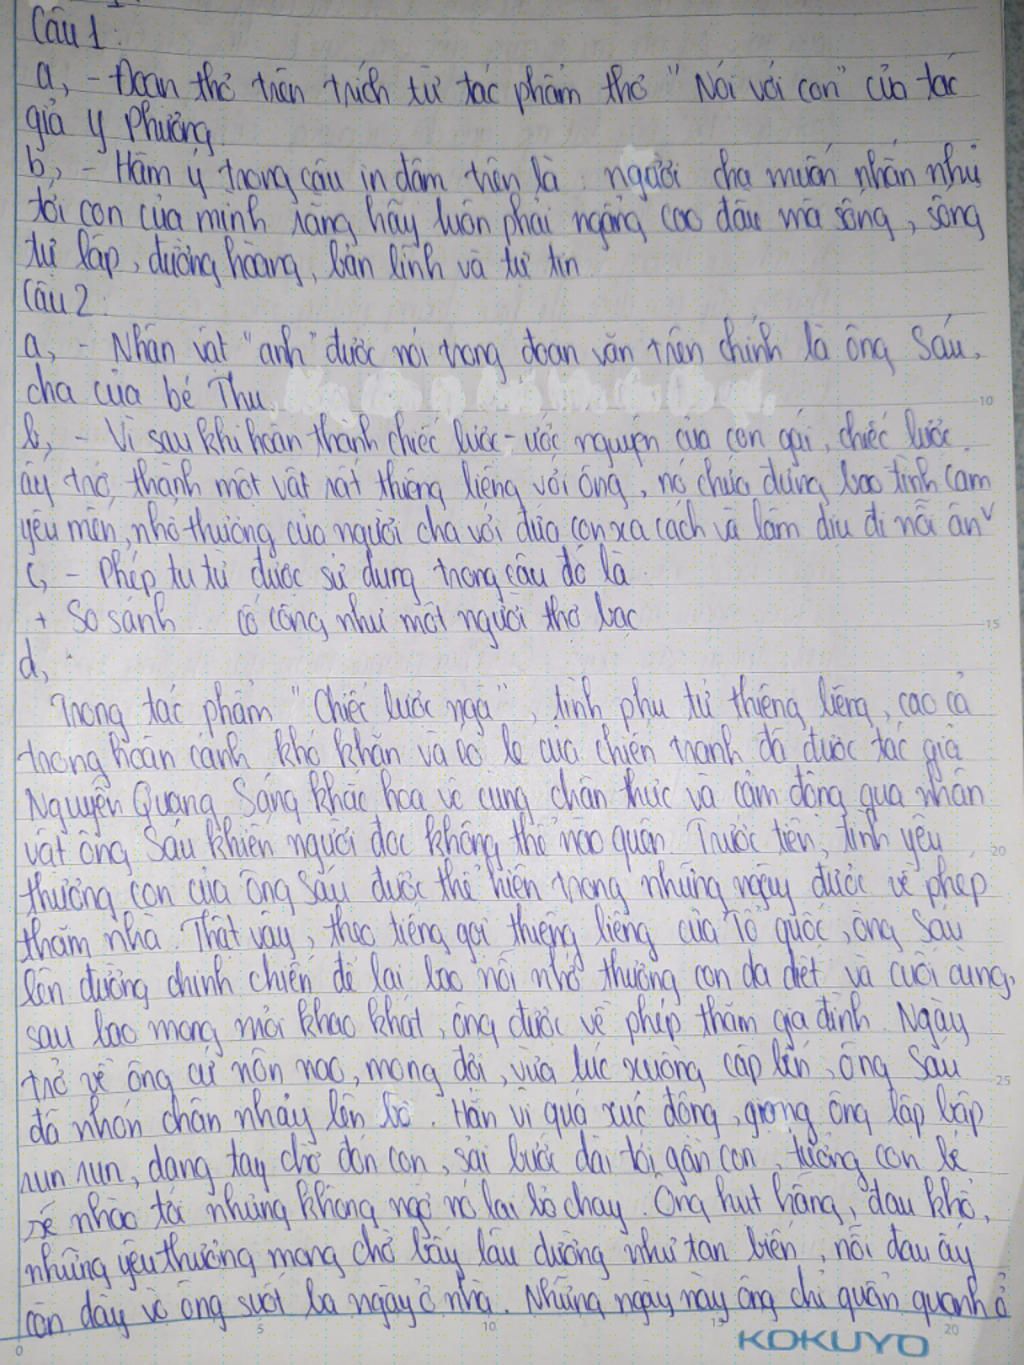 Câu 1:
a, - Đoạn thơ trên trích từ tác phẩm thơ "Nói với con" của tác
giả Y Phương.
b, - Hàm ý trong câu in đậm trên là: người cha muốn nhắn nhủ
tới con của mình rằng hãy luôn phải ngẩng cao đầu mà sống, sống
tự lập, đường hoàng, bản lĩnh và tự tin
Câu 2:
a, - Nhân vật "anh" được nói trong đoạn văn trên chính là ông Sáu,
cha của bé Thu.
b, - Vì sau khi hoàn thành chiếc lược - ước nguyện của con gái, chiếc lược
ấy trở thành một vật rất thiêng liêng với ông, nó chứa đựng bao tình cảm
yêu mến, nhớ thương của người cha với đứa con xa cách và làm dịu đi nỗi ân
c, - Phép tu từ được sử dụng trong câu đó là
+ So sánh: cố công như một người thợ bạc
d,
Trong tác phẩm "Chiếc lược ngà", tình phụ tử thiêng liêng, cao cả
trong hoàn cảnh khó khăn và éo le của chiến tranh đã được tác giả
Nguyễn Quang Sáng khắc họa vô cùng chân thực và cảm động qua nhân
vật ông Sáu khiến người đọc không thể nào quên. Trước tiên, tình yêu
thương con của ông Sáu được thể hiện trong những ngày được về phép
thăm nhà. Thật vậy, theo tiếng gọi thiêng liêng của Tổ quốc, ông Sáu
lên đường chinh chiến để lại bao nỗi nhớ thương con da diết và cuối cùng,
sau bao mong mỏi khao khát, ông được về phép thăm gia đình. Ngày
trở về ông cứ nôn nao, mong đợi, vừa lúc xuồng cập bến, ông Sáu
đã nhón chân nhảy lên bờ. Hẳn vì quá xúc động, giọng ông lắp bắp
run run, dang tay chờ đón con, sải bước dài tới gần con, tưởng con bé
sẽ nhào tới nhưng không ngờ nó lại bỏ chạy. Ông hụt hẫng, đau khổ,
những yêu thương mong chờ bấy lâu dường như tan biến, nỗi đau ấy
còn dày vò ông suốt ba ngày ở nhà. Những ngày này ông chỉ quẩn quanh ở
KOKUYO